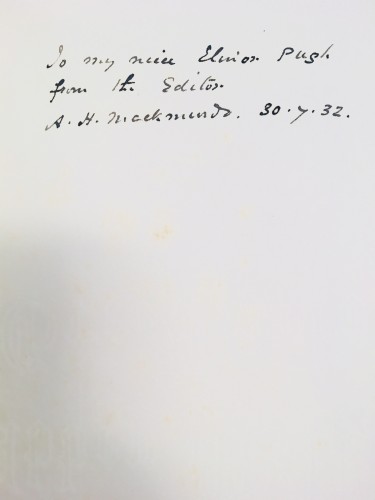 To my niece Elinor Pugh
from the Editor
A. H. Mackmurdo. 30.7.32.